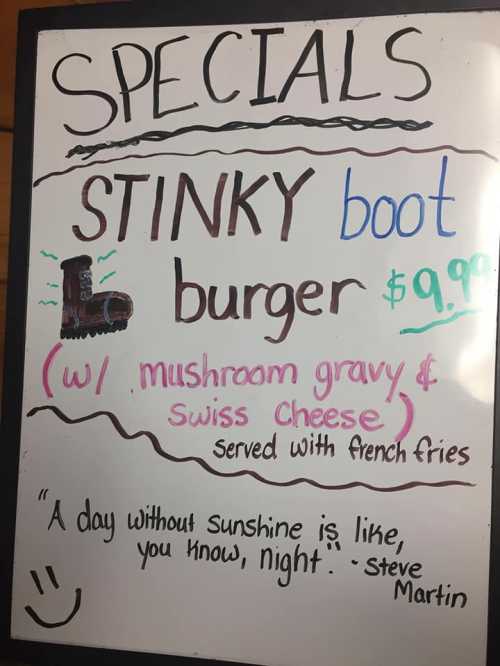 SPECIALS
STINKY boot
burger $9.99
(w/ mushroom gravy &
Swiss Cheese)
Served with french fries
"A day without sunshine is like,
you know, night." - Steve
Martin